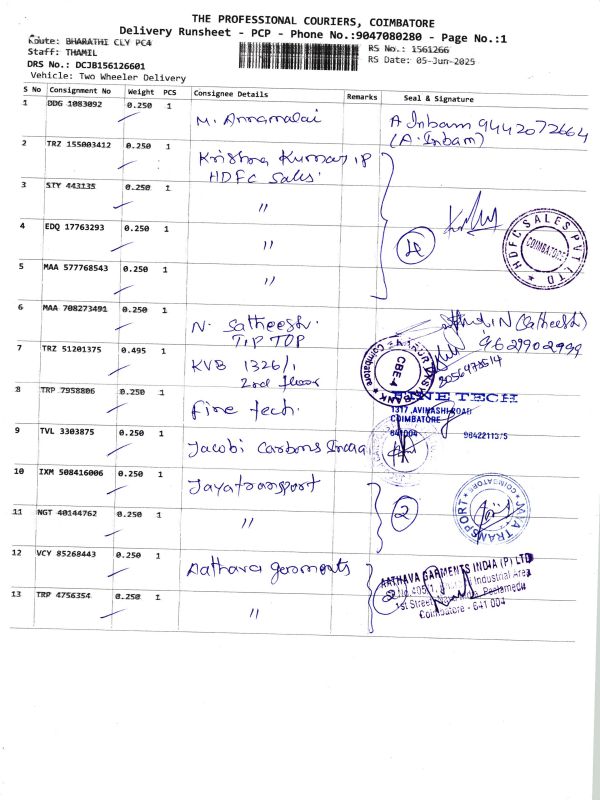 THE PROFESSIONAL COURIERS, COIMBATORE
Delivery Runsheet - PCP - Phone No.:9047080280 - Page No.:1
Route: BHARATHI CLY PC4
Staff: THAMIL
DRS No.: DCJB156126601
Vehicle: Two Wheeler Delivery
RS No.: 1561266
RS Date: 05-Jun-2025
S No Consignment No Weight PCS Consignee Details Remarks Seal & Signature
1 DDG 1083092 0.250 1 M. Annamalai A Inbam 9442072664
(A. Inbam)
2 TRZ 155003412 0.250 1 Krishna Kumar IP
HDFC Sales.
3 STY 443135 0.250 1 "
4 EDQ 17763293 0.250 1 " 4
HDFC SALES PVT LTD
COIMBATORE
5 MAA 577768543 0.250 1 "
6 MAA 708273491 0.250 1 N. Satheesh.
TIP TOP
N (Satheesh)
9629902999
7 TRZ 51201375 0.495 1 KVB 1326/1
2nd floor
KARUR VYSYA BANK
Coimbatore
CBE-4
8056978514
8 TRP 7958806 0.250 1 Fine tech.
FINE TECH
1317, AVINASHI ROAD
COIMBATORE
641004 9842211375
9 TVL 3303875 0.250 1 Jacobi Carbons India
10 IXM 508416006 0.250 1 Jayatransport
JAYA TRANSPORT
COIMBATORE
11 NGT 40144762 0.250 1 " 2
12 VCY 85268443 0.250 1 Aathava garments
AATHAVA GARMENTS INDIA (P) LTD
Industrial Area
1st Street, Peelamedu
Coimbatore - 641 004
13 TRP 4756354 0.250 1 " 2